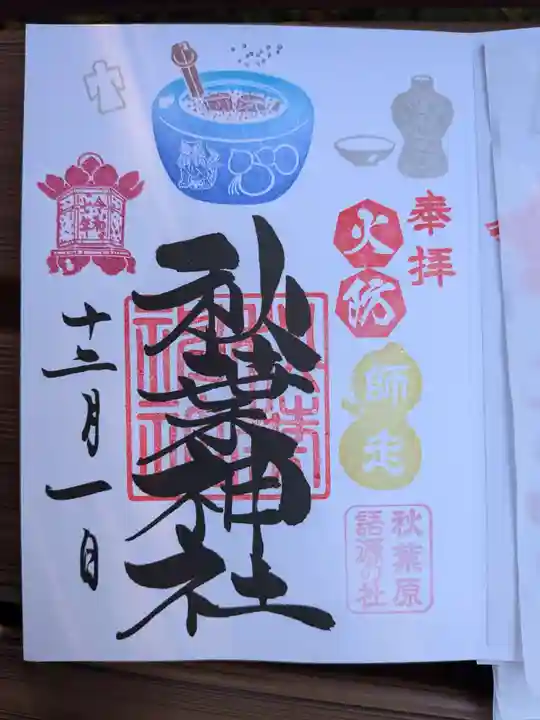 奉拝
火防
師走
秋葉原
語源の社
秋葉神社
十二月一日